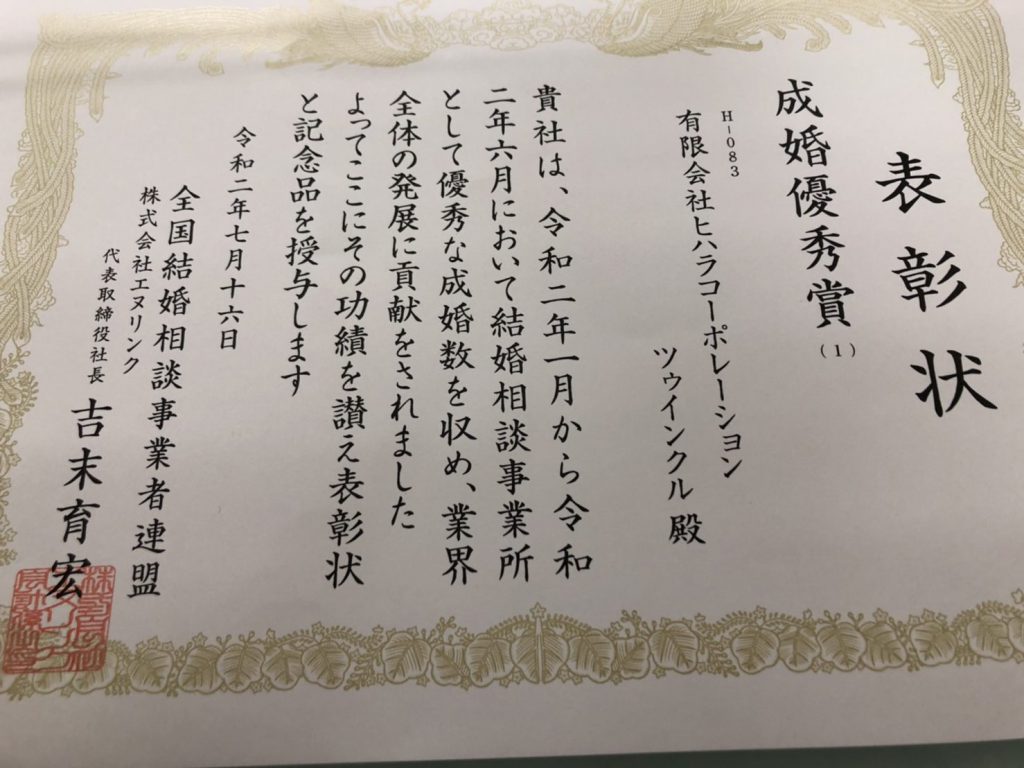 表彰状
成婚優秀賞(1)
H-083
有限会社ヒハラコーポレーション
ツゥインクル 殿
貴社は、令和二年一月から令和
二年六月において結婚相談事業所
として優秀な成婚数を収め、業界
全体の発展に貢献をされました
よってここにその功績を讃え表彰状
と記念品を授与します
令和二年七月十六日
全国結婚相談事業者連盟
株式会社エヌリンク
代表取締役社長 吉末育宏